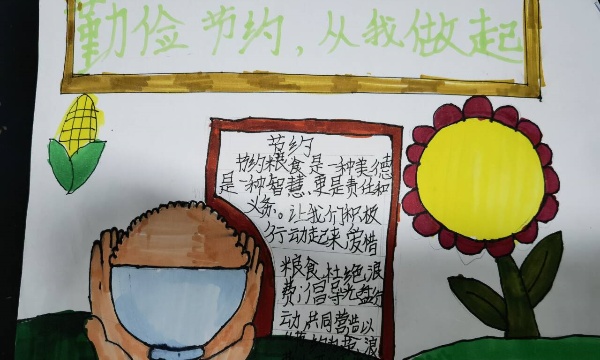 勤俭节约，从我做起
节约
节约粮食是一种美德
是一种智慧，更是责任和
义务。让我们积极
行动起来，爱惜
粮食，杜绝浪
费，倡导光盘行
动，共同营造以
浪